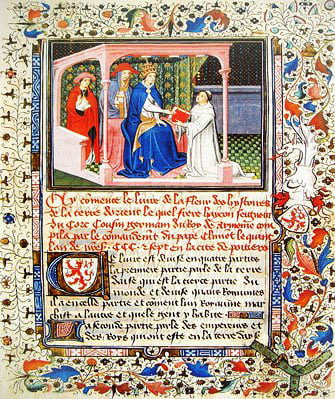 Cy comence le liure de la fleur des hystoires
de la terre dorient le quel frere haycon seigneur
du Corc Cousin germain du Roy darmenie con
pila par le comandement du pape Clement le quint
lan de mil CCC 7 sept en la cite de poitiers
Ce liure est deuise en quatre parties
la premiere partie parle de la terre
dasie qui est la tierce partie du
monde et deuise quans Royaumes
a en celle partie et coment lun Royaume mar
chist a lautre et quele gent y habite
La seconde partie parle des empereurs et
des Roys qui ont este en la terre dasie